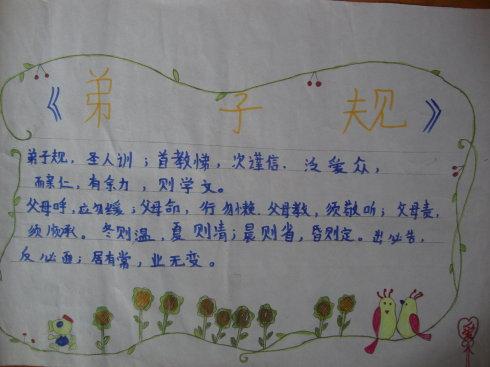 《弟子规》
弟子规，圣人训；首教悌，次谨信．泛爱众，
而亲仁，有余力，则学文。
父母呼，应勿缓；父母命，行勿懒．父母教，须敬听；父母责，
须顺承。冬则温，夏则清；晨则省，昏则定。出必告，
反必面；居有常，业无变。
爱